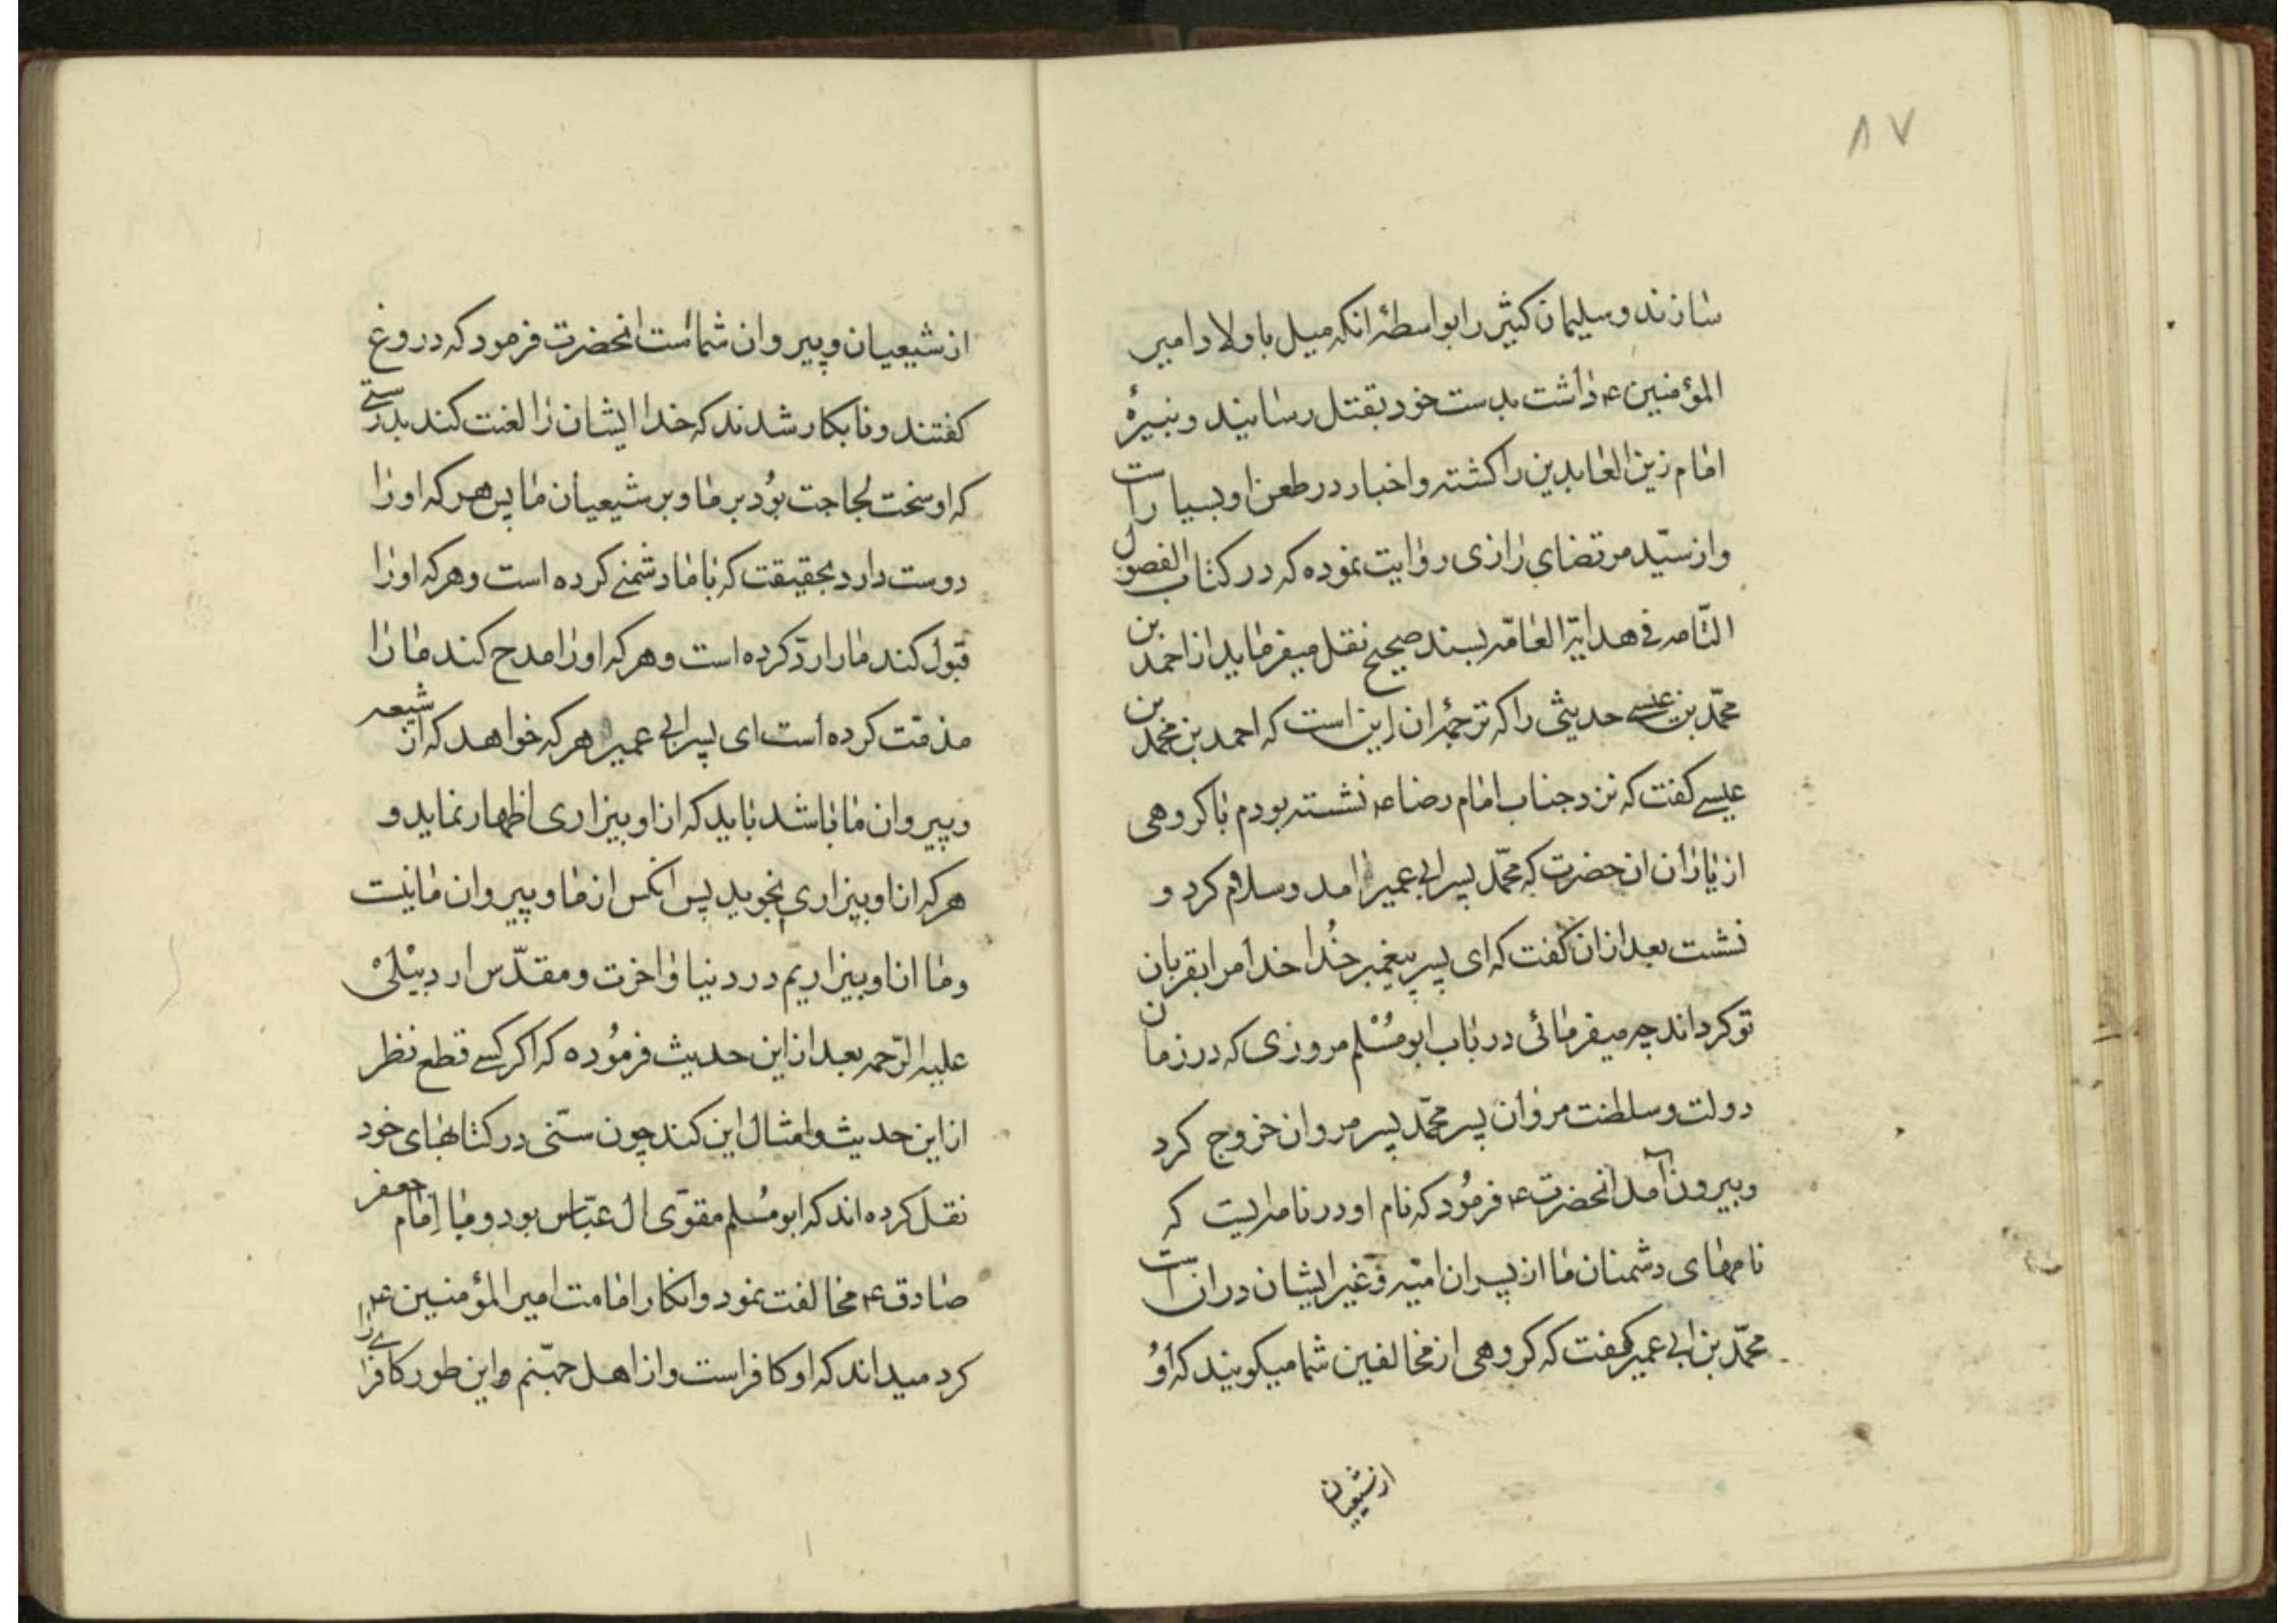 ۸۷
سازند و سلیمان کثیر را بواسطهٔ انکه میل باولاد امیر
المؤمنین ع داشت بدست خود بقتل رسانید و نبیرهٔ
امام زین العابدین را کشته و اخبار در طعن او بسیار است
و از سیّد مرتضای رازی روایت نموده که در کتاب الفصول
التّامه فی هدایة العامّه بسند صحیح نقل میفرماید از احمد بن
محمّد بن عیسے حدیثی را که ترجمهٔ ان این است که احمد بن محمّد بن
عیسے کفت که نزد جناب امام رضا ع نشسته بودم با کروهی
از یاران ان حضرت که محمّد پسر ابی عمیر امد و سلام کرد و
نشست بعد ازان کفت که ای پسر پیغمبر خُدا خدا مرا بقربان
تو کرداند چه میفرمائی در باب ابو مُسْلم مروزی که در زمان
دولت و سلطنت مروان پسر محمّد پسر مروان خروج کرد
و بیرون آمد انحضرت ع فرمُود که نام او در نامه ایست که
نامهای دشمنان ما از پسران امیّه و غیر ایشان دران است
محمّد بن ابی عمیر کفت که کروهی از مخالفین شما میکویند که اوُ
از شیعیان
از شیعیان و پیروان شماست انحضرت فرمود که دروغ
کفتند و نابکار شدند که خدا ایشان را لعنت کند بدرستے
که او سخت لجاجت بوُد بر ما و بر شیعیان ما پس هر که او را
دوست دارد بحقیقت که با ما دشمنے کرده است و هر که او را
قبول کند ما را ردّ کرده است و هر که او را مدح کند ما را
مذمّت کرده است ای پسر ابی عمیر هر که خواهد که از شیعه
و پیروان ما باشد باید که از او بیزاری اظهار نماید و
هر که از او بیزاری نجوید پس انکس از ما و پیروان ما نیست
و ما از او بیزاریم در دنیا و اخرت و مقدّس اردبیْلیْ
علیه الرّحمه بعد از این حدیث فرموُده که اکر کسے قطع نظر
از این حدیث و امثال این کند چون سنّی در کتابهای خود
نقل کرده اند که ابو مُسلم مقوّی ال عبّاس بود و با اِمام جعفر
صادق ع مخالفت نمود و انکار امامت امیر المؤمنین ع
کرد میداند که او کافر است و از اهل جهّنم و این طور کافرے را